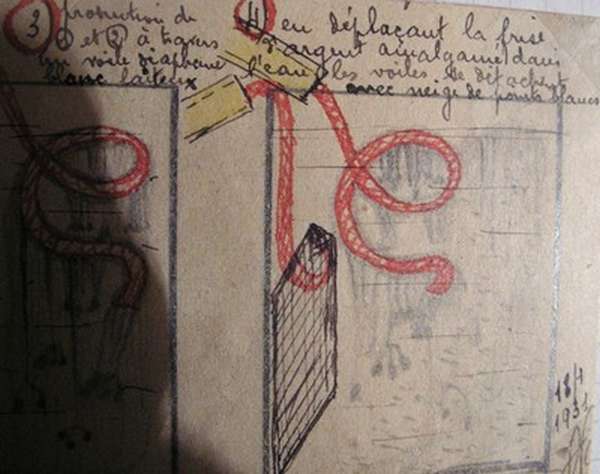 3 production de
1 et 2 à travers
un voile diaphane
blanc laiteux
4 en déplaçant la frise
d'argent amalgamé dans
l'eau, les voiles se détachent
avec neige de points blancs
18/1